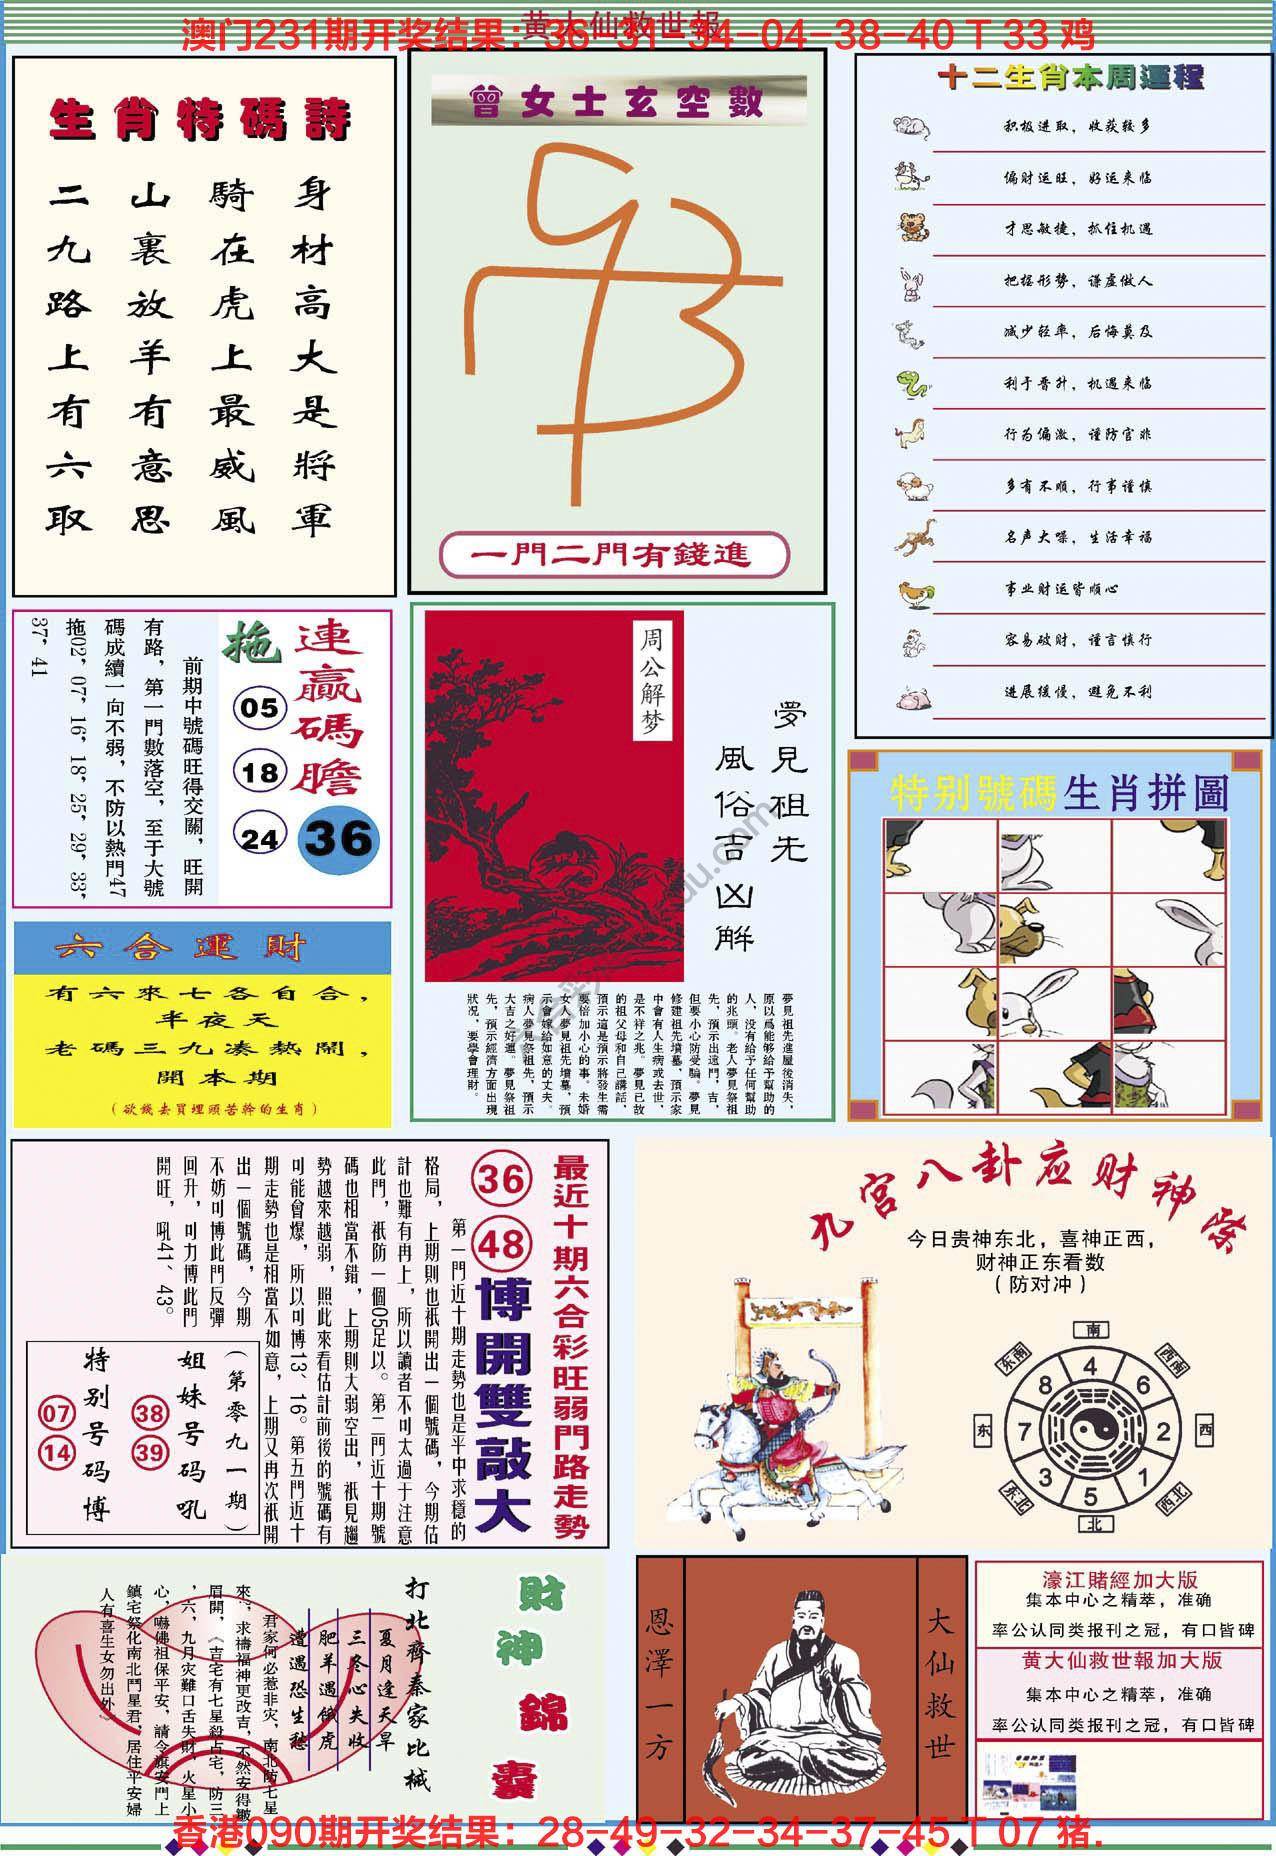 黄大仙救世報
澳门231期开奖结果：36-31-34-04-38-40 T 33 鸡
生肖特碼詩
身材高大是將軍
騎在虎上最威風
山裏放羊有意思
二九路上有六取
曾女士玄空數
一門二門有錢進
十二生肖本周運程
积极进取，收获较多
偏财运旺，好运来临
才思敏捷，抓住机遇
把握形势，谦虚做人
减少轻率，后悔莫及
利于晋升，机遇来临
行为偏激，谨防官非
多有不顺，行事谨慎
名声大噪，生活幸福
事业财运皆顺心
容易破财，谨言慎行
进展缓慢，避免不利
連贏碼膽
36
拖
05
18
24
前期中號碼旺得交關，旺開
有路，第一門數落空，至于大號
碼成續一向不弱，不防以熱門47
拖02，07，16，18，25，29，33，
37，41
周公解梦
夢見祖先
風俗吉凶解
夢見祖先進屋後消失，
原以爲能够給予幫助的
人，没有給予任何幫助
的兆頭。老人夢見祭祖
先，預示出遠門，吉，
但要小心防受騙。夢見
修建祖先墳墓，預示家
中會有人生病或去世，
是不祥之兆。夢見已故
的祖父母和自己講話，
預示這是預示將發生需
要倍加小心的事。未婚
女人夢見祖先墳墓，預
示會嫁給如意的丈夫。
病人夢見祭祖先，預示
大吉之好運。夢見祭祖
先，預示經濟方面出現
狀况，要學會理財。
特别號碼生肖拼圖
六合運財
有六來七各自合，
半夜天
老碼三九凑熱鬧，
開本期
（欲錢去買埋頭苦幹的生肖）
最近十期六合彩旺弱門路走勢
36
48
博開雙敲大
第一門近十期走勢也是平中求穩的
格局，上期則也祇開出一個號碼，今期估
計也難有再上，所以讀者不可太過于注意
此門，祇防一個05足以。第二門近十期號
碼也相當不錯，上期則大弱空出，祇見趨
勢越來越弱，照此來看估計前後的號碼有
可能會爆，所以可博13、16。第五門近十
期走勢也是相當不如意，上期又再次祇開
出一個號碼，今期
不妨可博此門反彈
回升，可力博此門
開旺，吼41、43。
（第零九一期）
姐妹号码吼
38
39
特别号码博
07
14
九宫八卦应财神篆
今日贵神东北，喜神正西，
财神正东看数
（防对冲）
南
东南
西南
东
西
东北
西北
北
4
8
6
7
2
3
1
5
財神錦囊
打北齊秦家比械
夏月逢天旱
三冬心失收
肥羊遇饿虎
遭遇恐生愁
君家何必惹非灾，南北防七星
來∴求禱福神更改吉，不然安得皺
眉開，《吉宅有七星殺占宅，防三
，六，九月灾難口舌失財，火星小
心，嚇佛祖保平安，請令旗安門上
鎮宅祭化南北鬥星君，居住平安婦
人有喜生女勿出外》
大仙救世
恩澤一方
濠江賭經加大版
集本中心之精萃，准确
率公认同类报刊之冠，有口皆碑
黄大仙救世報加大版
集本中心之精萃，准确
率公认同类报刊之冠，有口皆碑
香港090期开奖结果：28-49-32-34-37-45 T 07 猪.